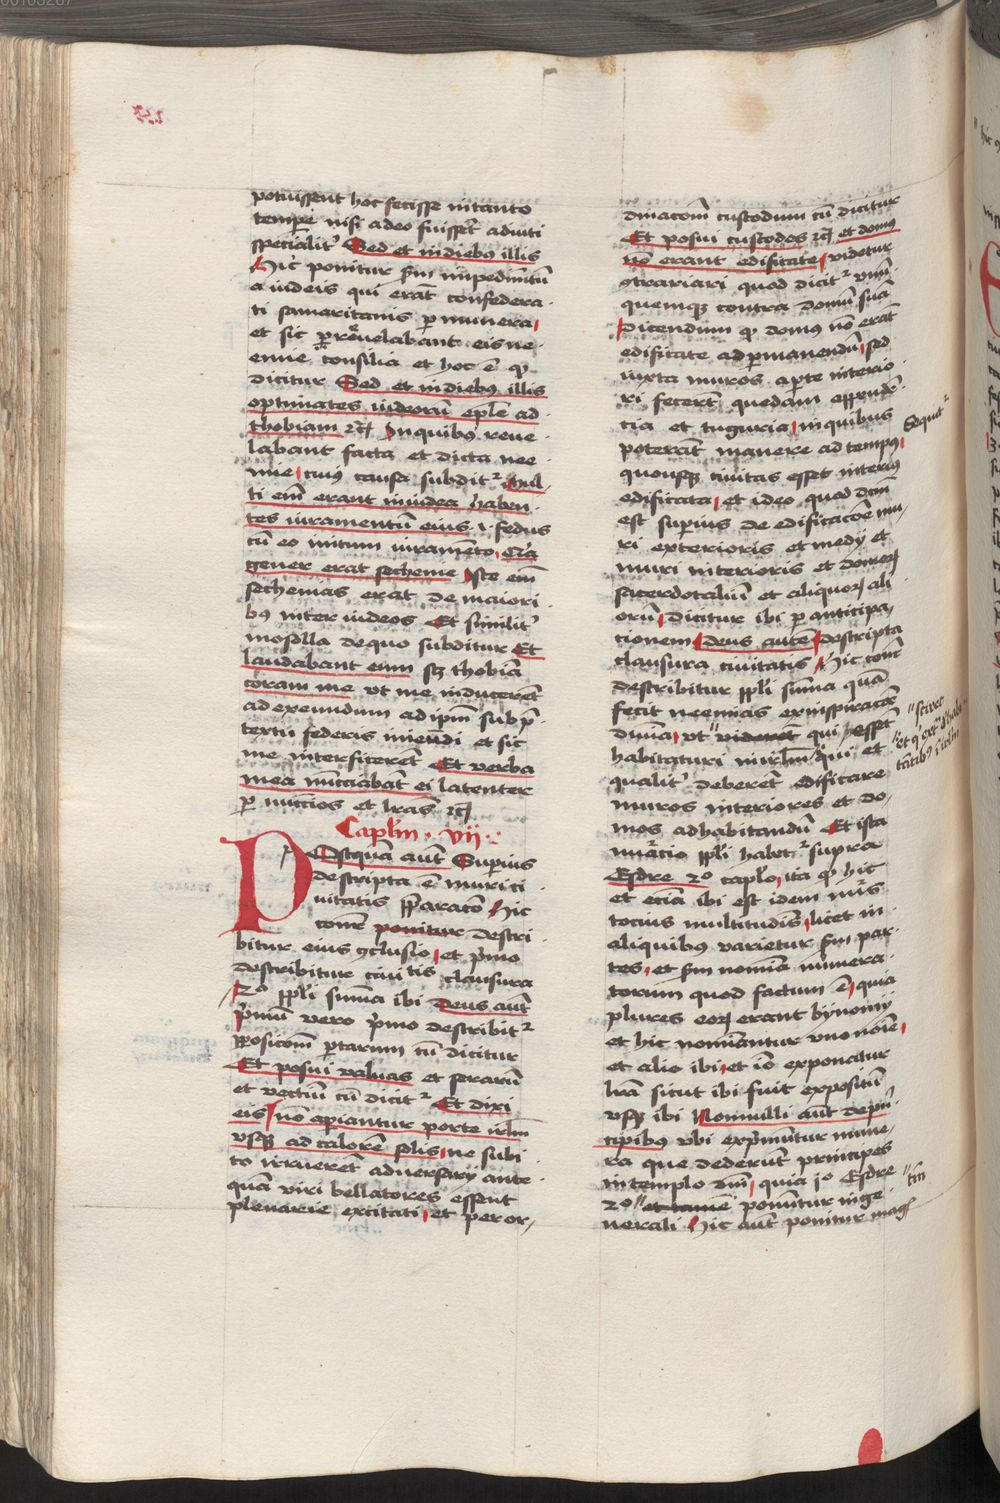 potuissent hoc fecisse in tanto
tempe nisi a deo fuisset adiuti
specialit Sed et in diebus illis
Hic ponitur sm impedimetu
a iudeis qui erat confedera
ti samaritanis p munera
et sic reuelabant eis ne
emie consilia et hoc e qp
dicitur Sed et in diebus illis
optimates iudeoru eple ad
thobiam rc In quibus reue
labant facta et dicta nee
mie cuius causa subdit Mul
ti em erant in iudea haben
tes iuramentu eius .i. fedus
cu eo initum iuramento Quia
gener erat sechenie Iste em
sechenias erat de maiori
bus inter iudeos Et similit
mosolla de quo subditur Et
laudabant eum sz thobia
coram me vt me induceret
ad exeundum ad ipm sub p
textu federis iniendi et sic
me interficeret Et verba
mea nucciabat ei latenter
p nuccios et lras rc
Caplm . vij .
Postqua aut Superius
descripta e muri ci
uitatis pparaco Hic
conr ponitur descri
bitur eius gclusio et pmo
describitur ciui tis clausura
2o ppli suma ibi Deus aut
pmu vero pmo describit
pposicom portarum cu dicitur
Et posui valuas et seraru
et vectiu cu dicit Et dixi
eis no aperiantur porte irlm
vsqz ad calore solis ne subi
to irrueret aduersarij ante
qua viri bellatores essent
plenarie excitati et per or
dinacom custodum cu dicitur
Et posui custodes rc et domus
no erant edificate videtur
gtrariari quod dicit vnu
quemqz contra domu sua
Dicendum qp domus no erat
edificate ad pmanendu sed
iuxta muros a pte interio
ri fecert quedam
cia et tuguria in quibus
poterat manere ad tempus
Sequit
quousqz ciuitas esset interius
edificata et ideo quod dcm
est superius de edificacoe mu
ri exterioris et medij et
muri interioris et domorz
sacerdotaliu et aliquorz ali
oru Dicitur ibi p anticipa
cionem Deus aute descripta
clausura ciuitatis Hic conr
describitur ppli suma qua
fecit neemias ex inspiracoe
diuina vt videret qui esset
sciret
habitaturi in irlm qui et
qualit deberet edificare
muros interiores et do
mos ad habitandu Et ista
nuracio ppli habet supra
Esdre 2o caplo ita qp hic
et etia ibi est idem nurs
tocius multitudis licet in
aliquibus varietur sm par
tes et sm nomia numera
torum quod factum e quia
plures eorz erant bynomij
et hic nomiantur vno noie
et alio ibi et io exponatur
lra sicut ibi fuit expositu
vsqz ibi Nonnulli aut de pn
cipibus vbi exprimuntur mune
ra que dederut principes
in templo dni quia jo Esdre
2o et tame ponuntur in ge
tm
nerali Hic aut ponitur mag